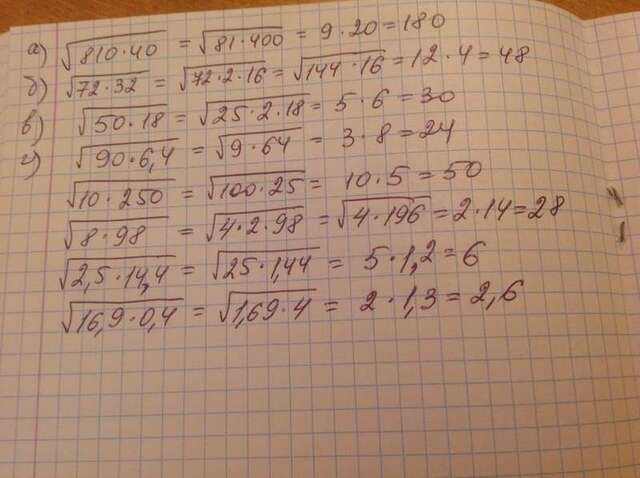 а) √810·40 = √81·400 = 9·20 = 180
б) √72·32 = √72·2·16 = √144·16 = 12·4 = 48
в) √50·18 = √25·2·18 = 5·6 = 30
г) √90·6,4 = √9·64 = 3·8 = 24
√10·250 = √100·25 = 10·5 = 50
√8·98 = √4·2·98 = √4·196 = 2·14 = 28
√2,5·14,4 = √25·1,44 = 5·1,2 = 6
√16,9·0,4 = √1,69·4 = 2·1,3 = 2,6